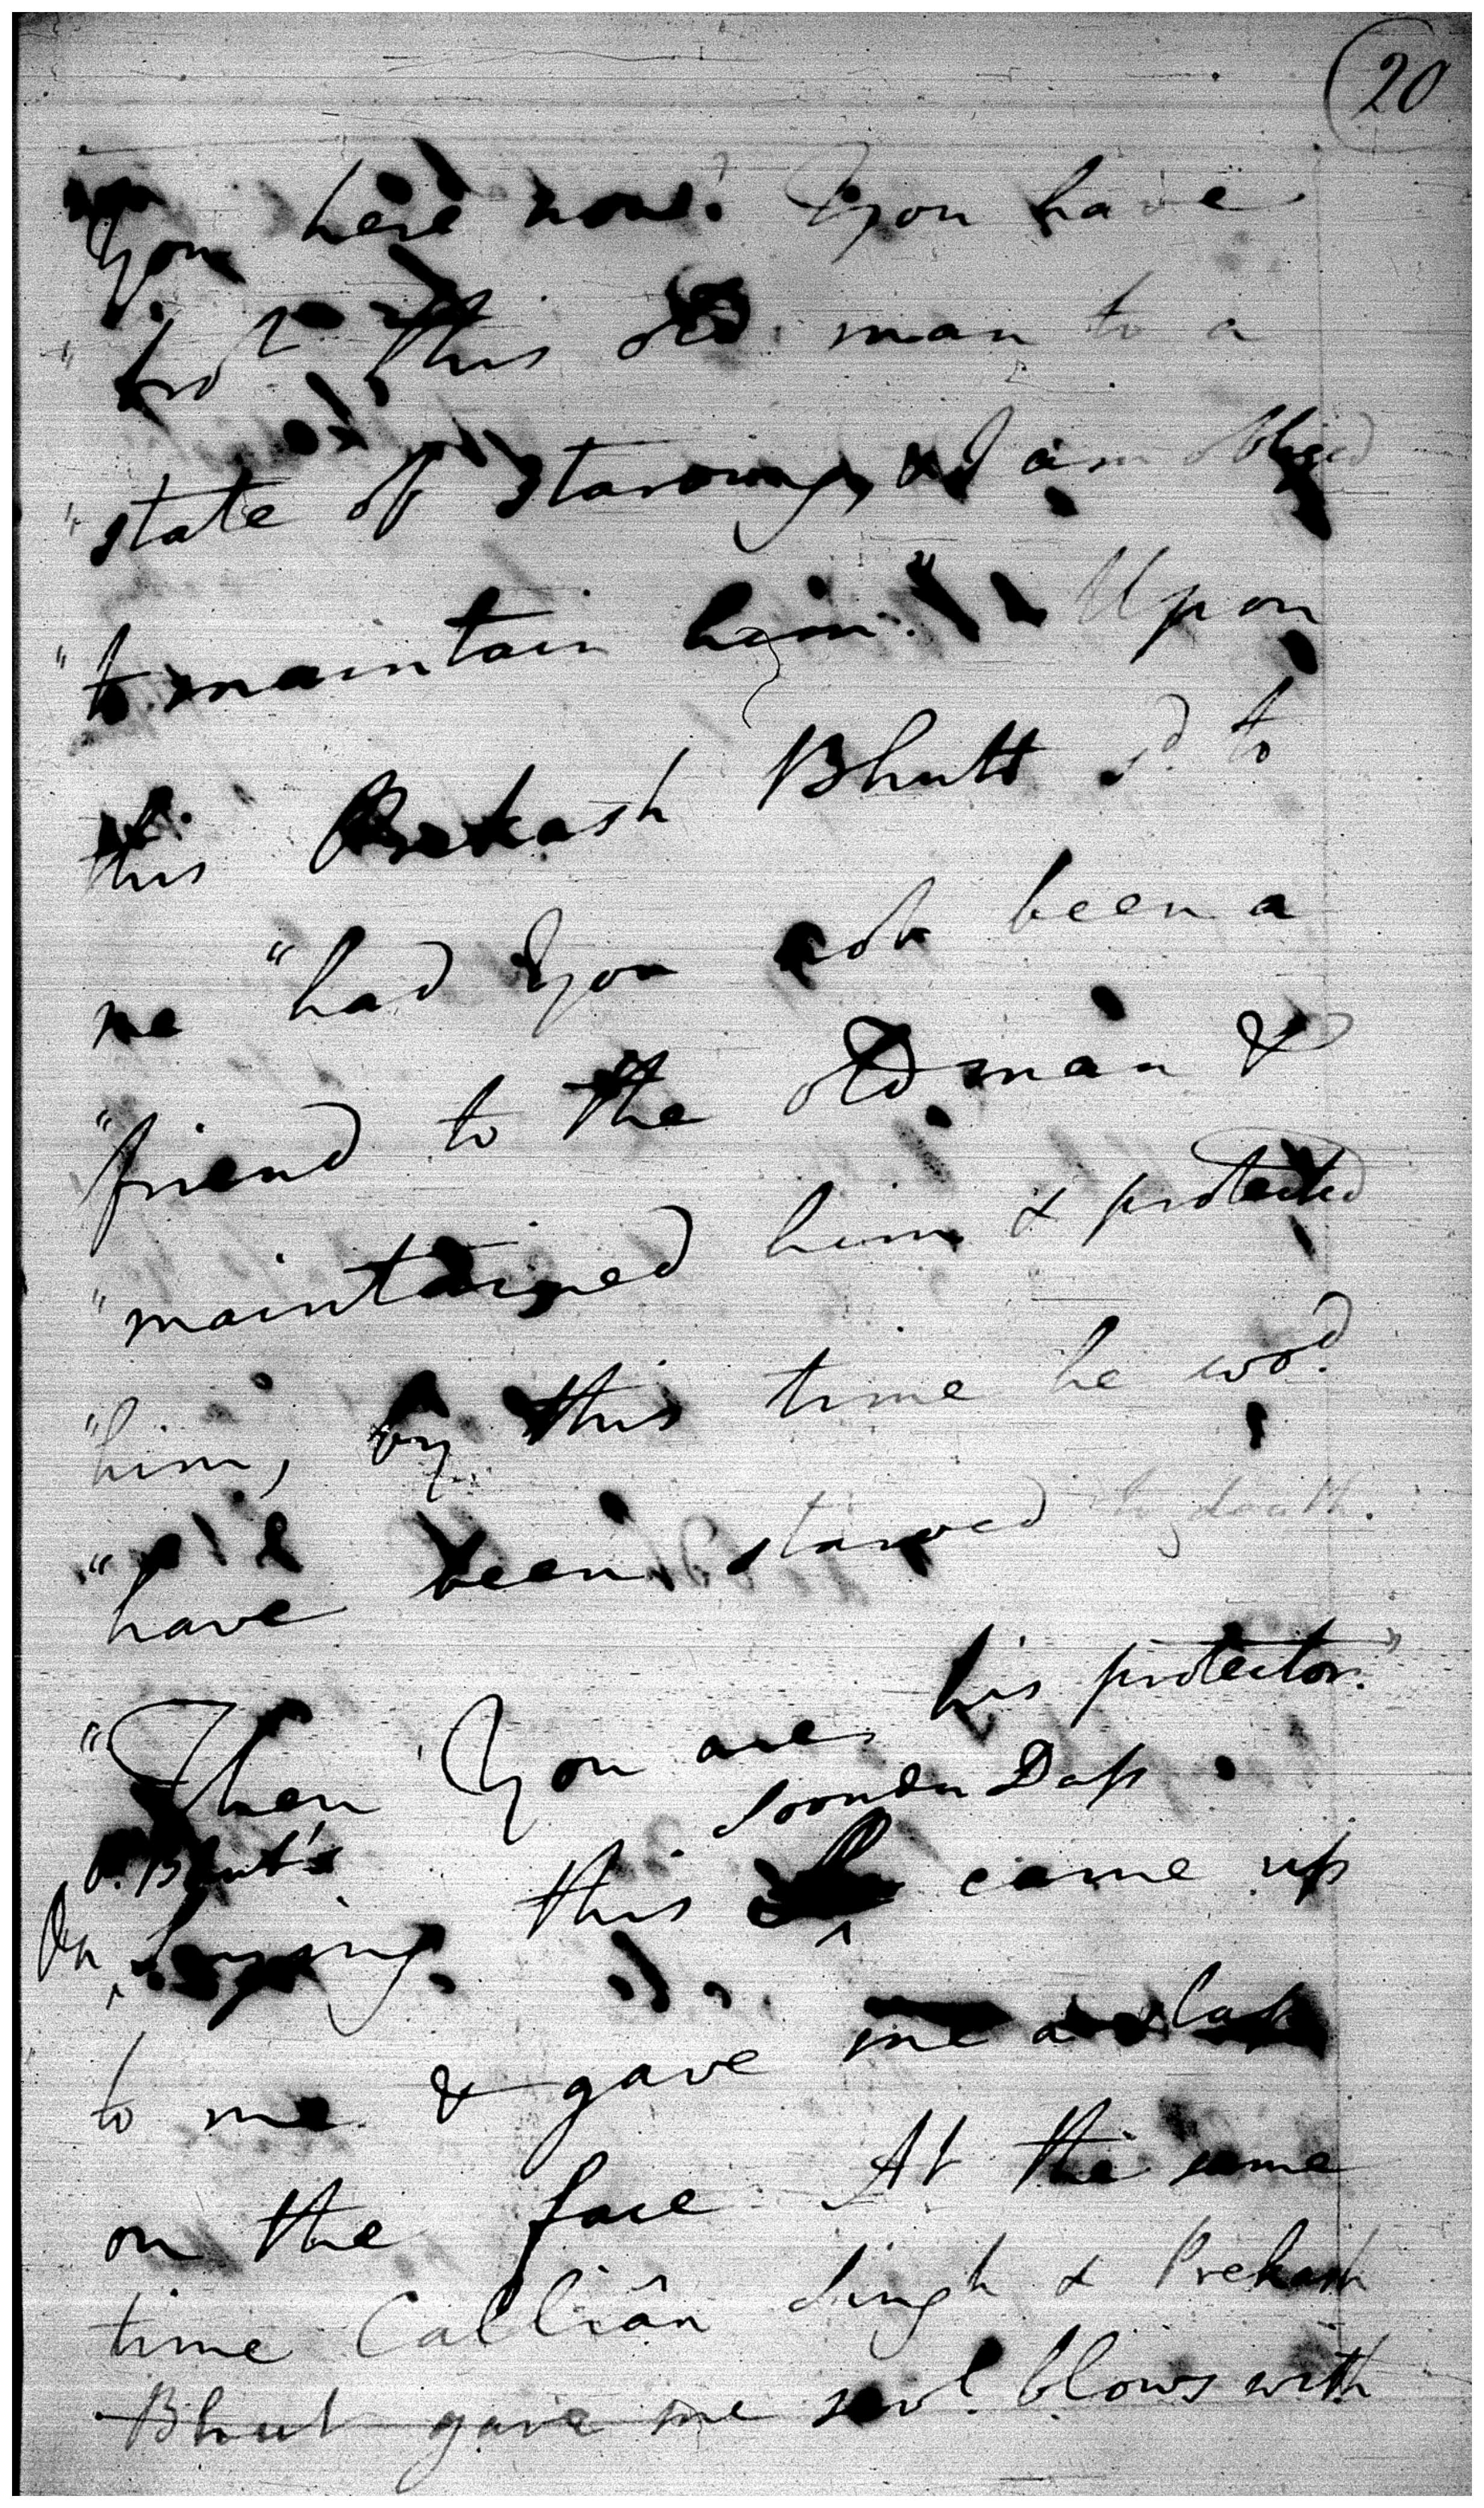 20
you here now. You have
" bro.t this old man to a
" state of starving, & I am obliged
" to maintain him." Upon
this Prekash Bhutt s.d to
me "had you not been a
"friend to the old man &
"maintained him & protected
"him, by this time he wo.d
"have been starved to death.
"Then You are his protector."
Soonder Dass
P. Bhut's
On saying this came up
to me & gave me a slap
on the face At the same
time Calliân Singh & Prekash
Bhut gave me sev.l blows with